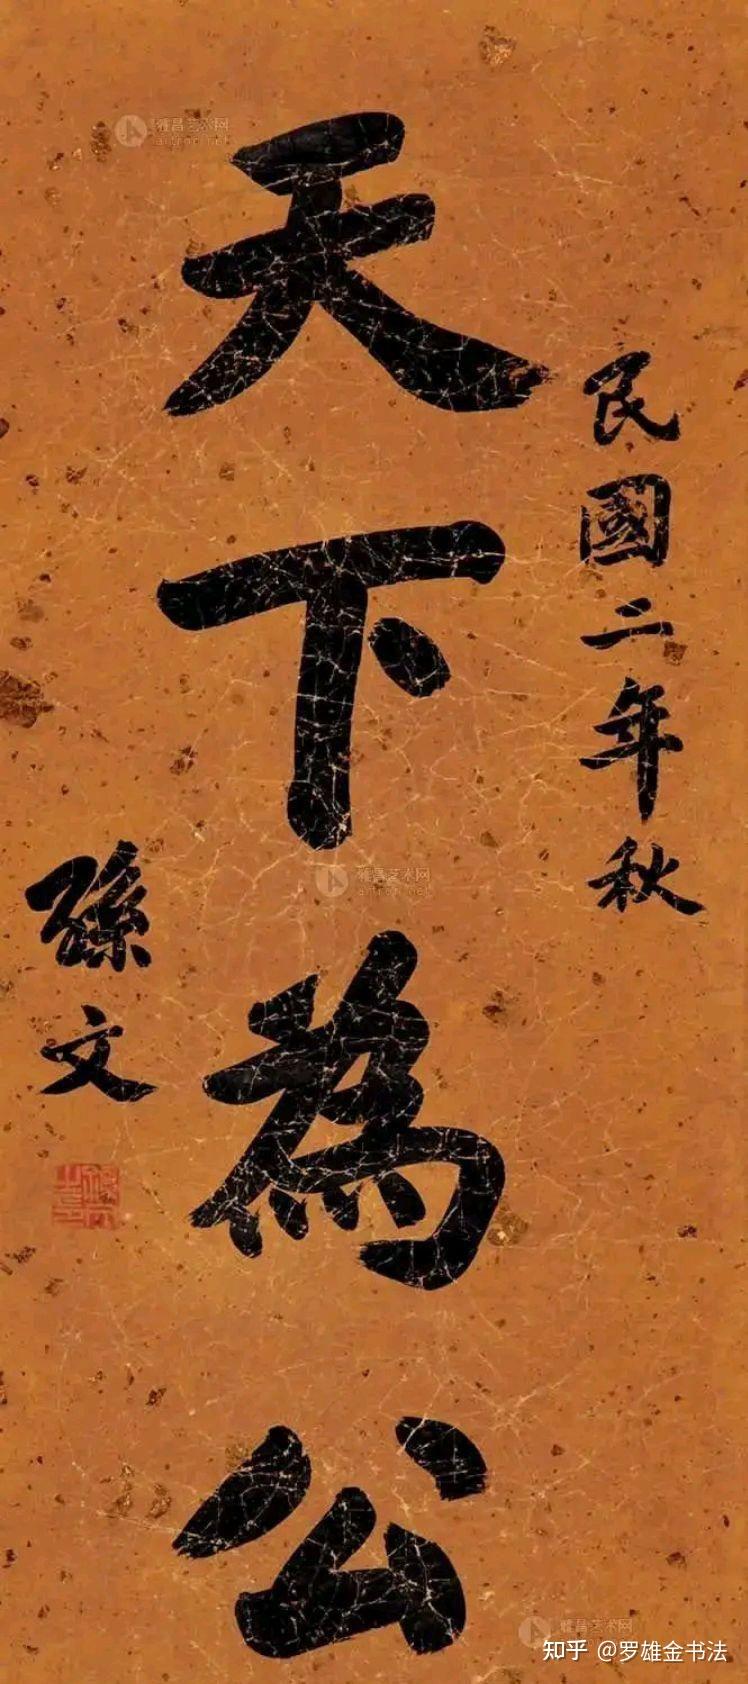 民國二年秋
天下為公
孫文
雅昌艺术网
artron.net
雅昌艺术网
artron.net
雅昌艺术网
知乎 @罗雄金书法